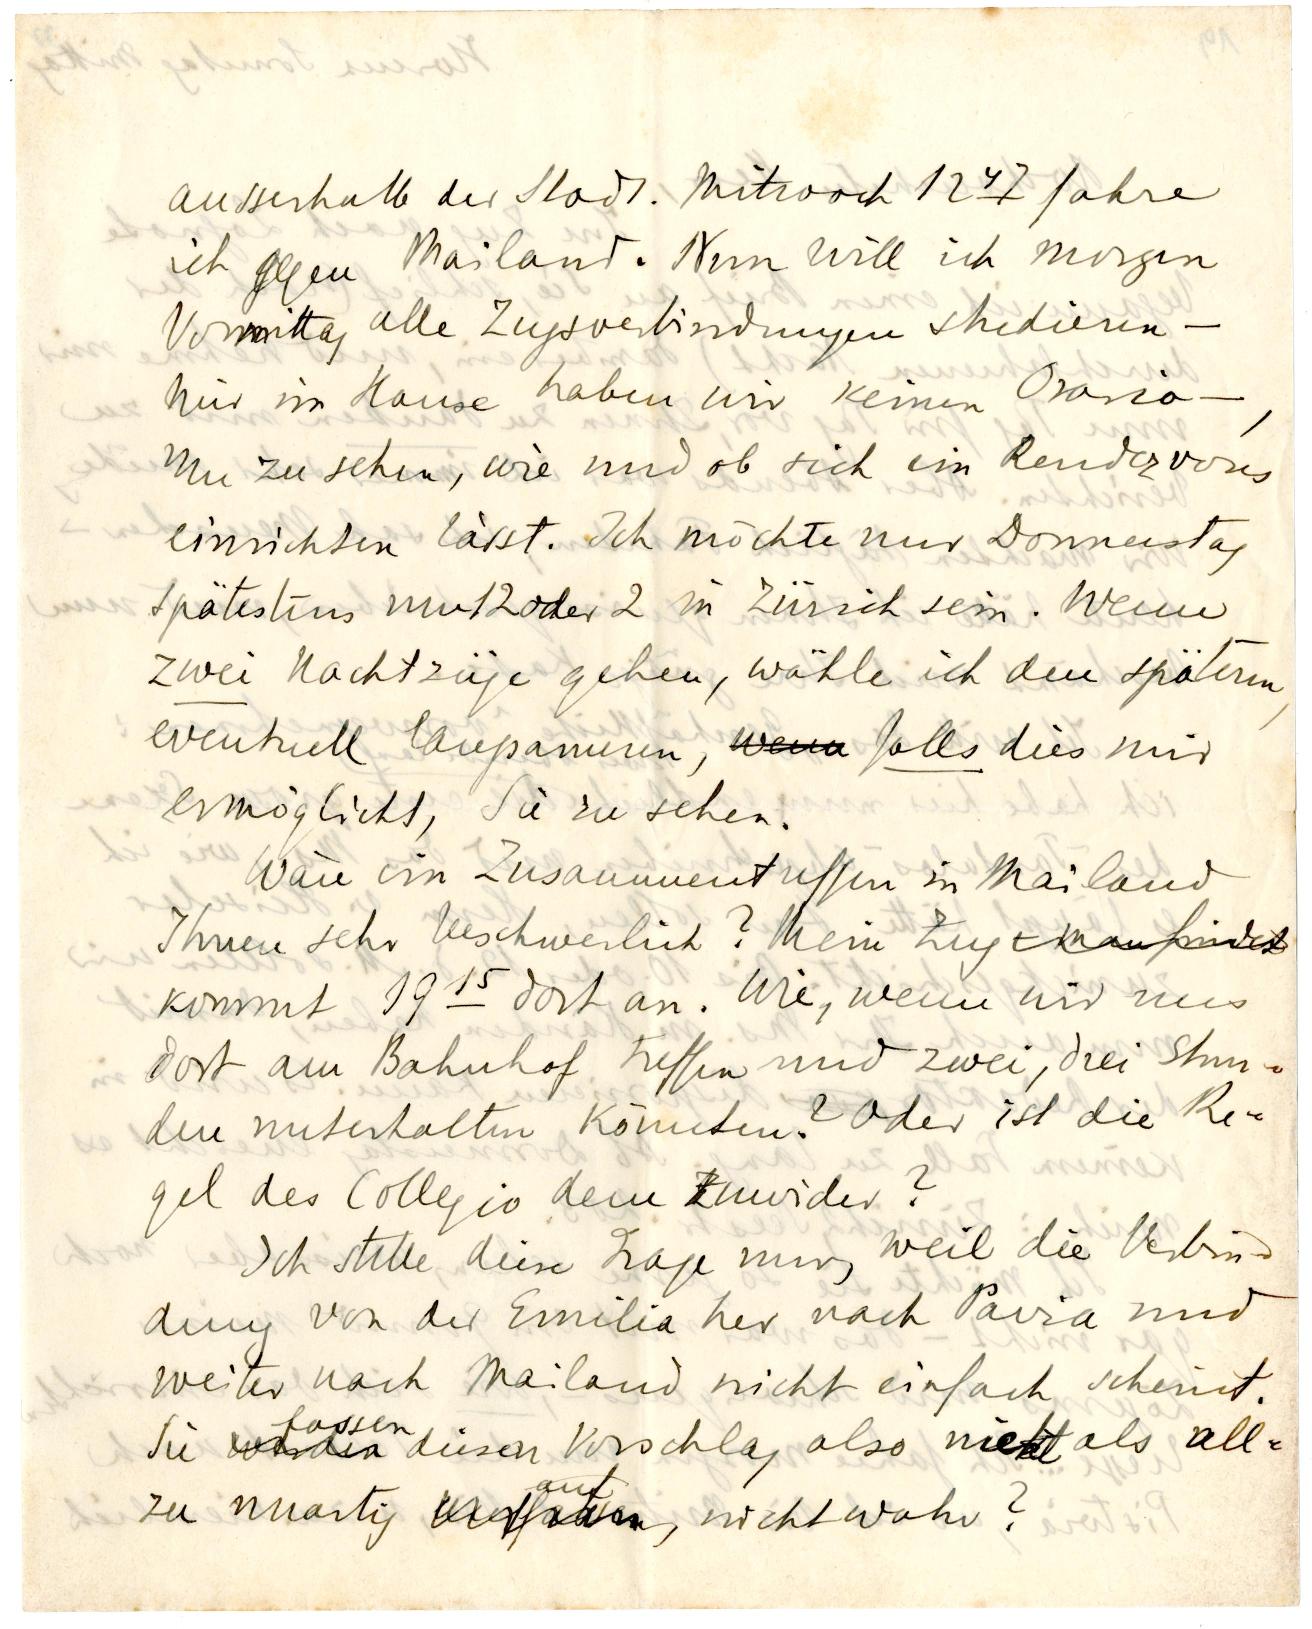 ausserhalb der Stadt. Mittwoch 12 47 fahre
ich gegen Mailand. Nun will ich morgen
Vormittag alle Zugsverbindungen studieren –
hier im Hause haben wir keinen Orario –,
um zu sehen, wie und ob sich ein Rendezvous
einrichten lässt. Ich möchte nur Donnerstag
spätestens um 12 oder 2 in Zürich sein. Wenn
zwei Nachtzüge gehen, wähle ich den spätern,
eventuell langsameren, wenn falls dies mir
ermöglicht, Sie zu sehen.
Wäre ein Zusammentreffen in Mailand
Ihnen sehr beschwerlich? Mein Zug
kommt 19 15 dort an. Wie, wenn wir uns
dort am Bahnhof treffen und zwei, drei Stun-
den unterhalten könnten? Oder ist die Re-
gel des Collegio dem zuwider?
Ich stelle diese Frage nur, weil die Verbin-
dung von der Emilia her nach Pavia und
weiter nach Mailand nicht einfach scheint.
Sie werden fassen diesen Vorschlag also nicht als all-
zu unartig auf, nicht wahr?